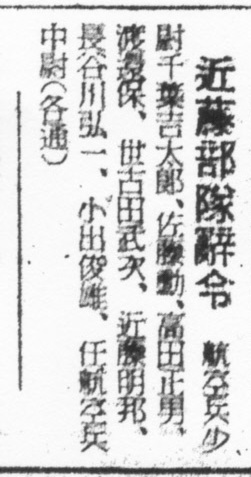 近藤部隊辭令　航空兵少
尉千葉吉太郎、佐藤勳、高田正男、
渡邊保、世古田武次、近藤明邦、
長谷川弘一、小出俊雄、任航空兵
中尉（各通）